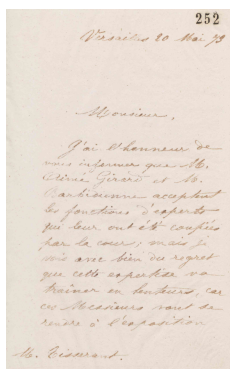 252
Versailles 20 Mai 73
Monsieur,
J'ai l'honneur de
vous informer que M.
Aimé Girard et M.
Barbizonne acceptent
les fonctions d'experts
qui leur ont été confiées
par la cour; mais je
vois avec bien du regret
que cette expertise va
traîner en lenteurs, car
ces Messieurs vont se
rendre à l'exposition
M. Tisserant.